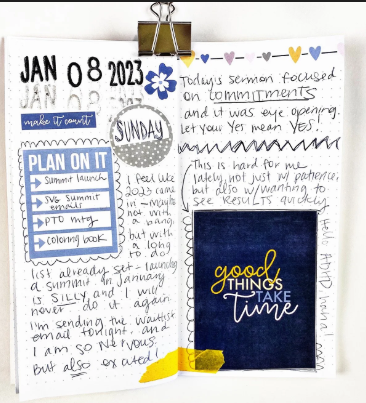 JAN 08 2023
JAN 08 2023
make it count
SUNDAY
PLAN ON IT
Summit launch
SVG Summit
emails
PTO mtg
coloring book
I feel like
2023 came
in - minute
not with
a bang
but with
a long
to do
list already set - launching
a summit in January
is SILLY and I will
never do it again.
I'm sending the waitlist
email tonight, and
I am so nervous
but also excited!
Today's sermon focused
on commitments
and it was eye opening.
Let your Yes mean YES!
This is hard for me
lately, not just w/ patience,
but also w/ wanting to
see RESULTS quickly
Hello ADHD haha!
good
THINGS
TAKE
time